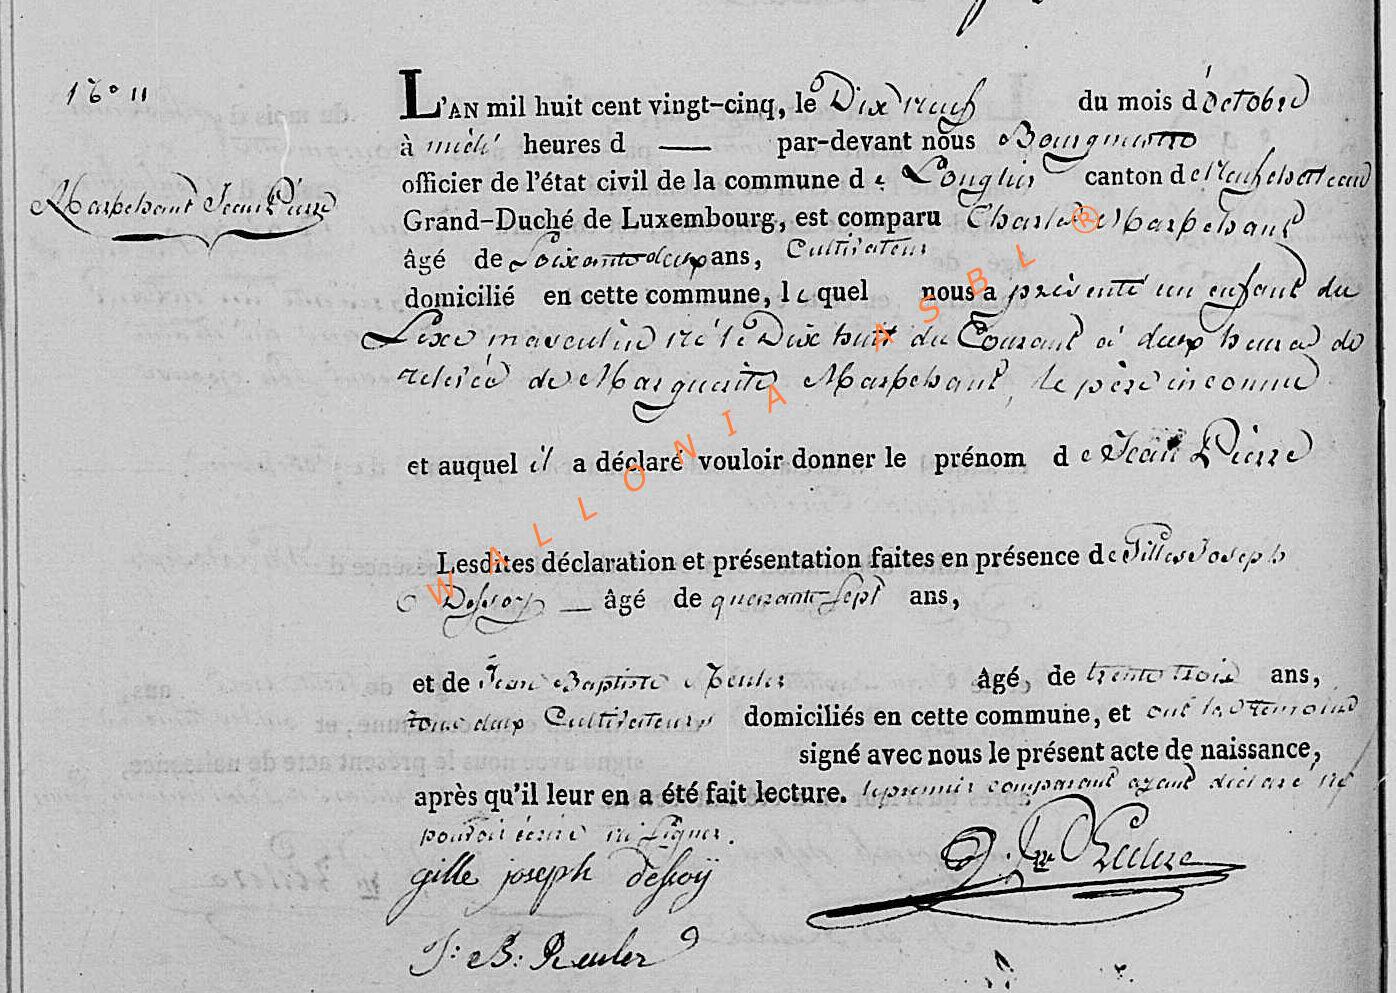 N° 11
Marpehant Jean Pierre
L'AN mil huit cent vingt-cinq, le Dix neuf du mois d'octobre
à midi heures d — par-devant nous Bourgmestre
officier de l'état civil de la commune de Longlier canton de Neufchateau
Grand-Duché de Luxembourg, est comparu Charles Marpehant
âgé de Soixante deux ans, Cultivateur
domicilié en cette commune, lequel nous a présenté un enfant du
Sexe masculin né le Dix huit du Courant à deux heures de
relevée de Marguerite Marpehant, de père inconnu
et auquel il a déclaré vouloir donner le prénom de Jean Pierre
Lesdites déclaration et présentation faites en présence de Gilles Joseph
Dessoy — âgé de quarante-sept ans,
et de Jean Baptiste Reuler âgé de trente trois ans,
tous deux Cultivateurs domiciliés en cette commune, et ont les témoins
signé avec nous le présent acte de naissance,
après qu'il leur en a été fait lecture. le premier comparant ayant déclaré ne
pouvoir écrire ni signer.
gille joseph dessoÿ
J: B: Reuler
WALLONIA ASBL ®